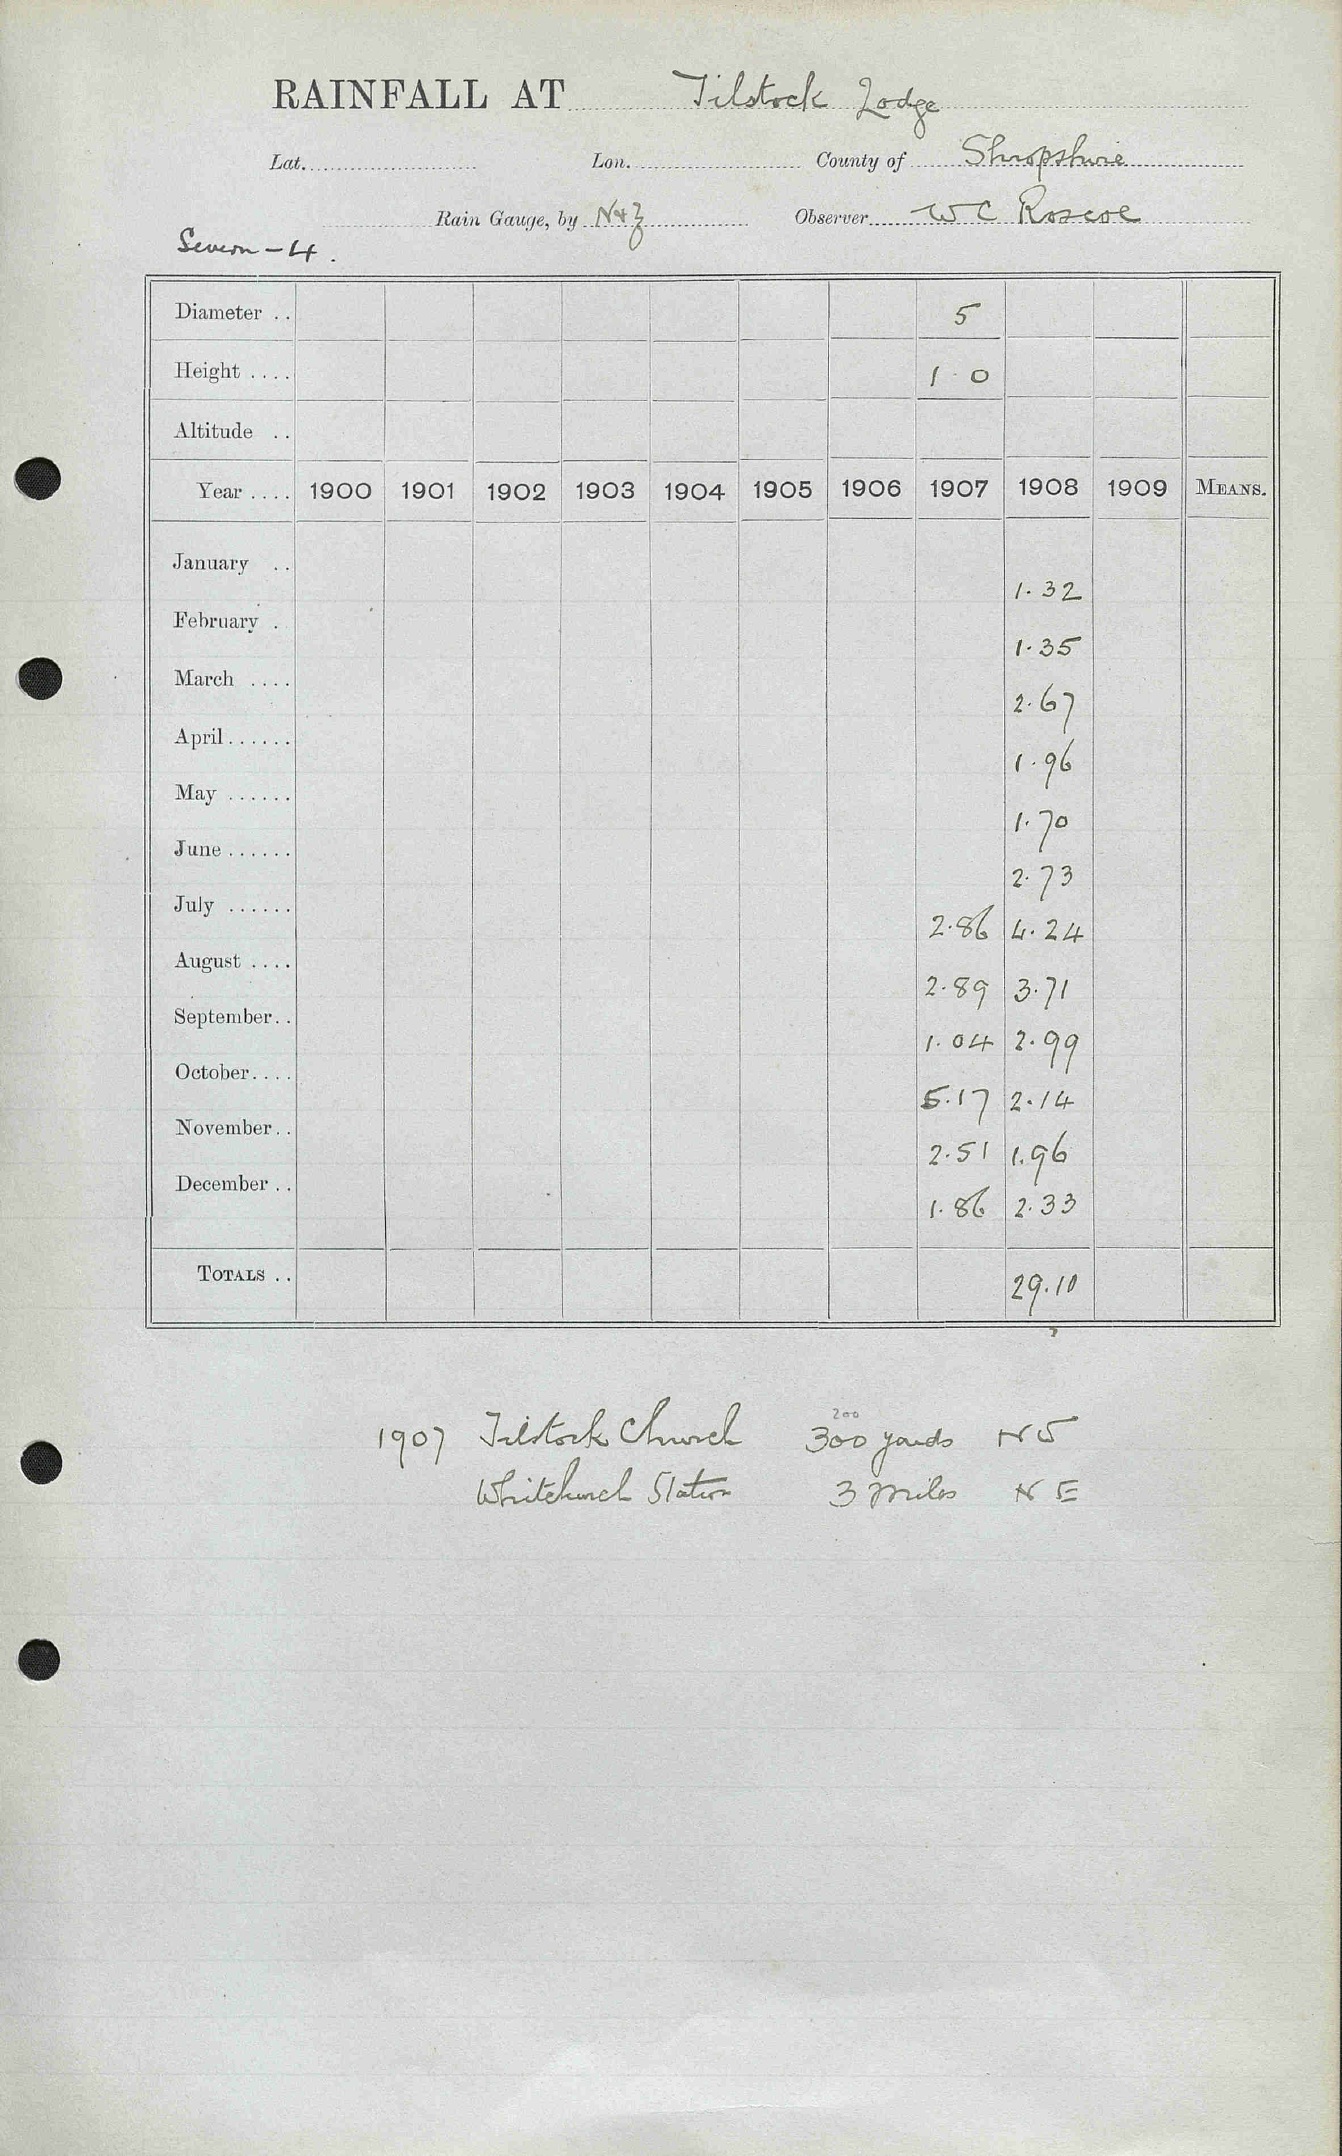 RAINFALL AT Tilstock Lodge
Lat. Lon. County of Shropshire
Rain Gauge, by N&Z Observer W C Roscoe
Severn - 4.
Diameter .. 5
Height .... 1 0
Altitude ..
Year .... 1900 1901 1902 1903 1904 1905 1906 1907 1908 1909 MEANS.
January .. 1.32
February . 1.35
March .... 2.67
April...... 1.96
May ...... 1.70
June ...... 2.73
July ...... 2.86 4.24
August .... 2.89 3.71
September.. 1.04 2.99
October.... 5.17 2.14
November.. 2.51 1.96
December .. 1.86 2.33
TOTALS .. 29.10
200
1907 Tilstock Church 300 yards
Whitchurch Station 3 miles N E